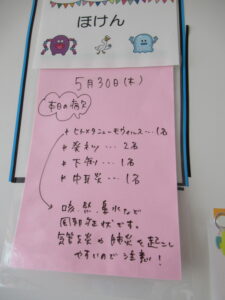 ほけん
5月30日(木)
本日の病欠
* ヒトメタニューモウィルス…1名
* 発熱 … 2名
* 下痢 … 1名
* 中耳炎 … 1名
咳、熱、鼻水など
風邪症状です。
気管支炎や肺炎を起こし
やすいので注意!